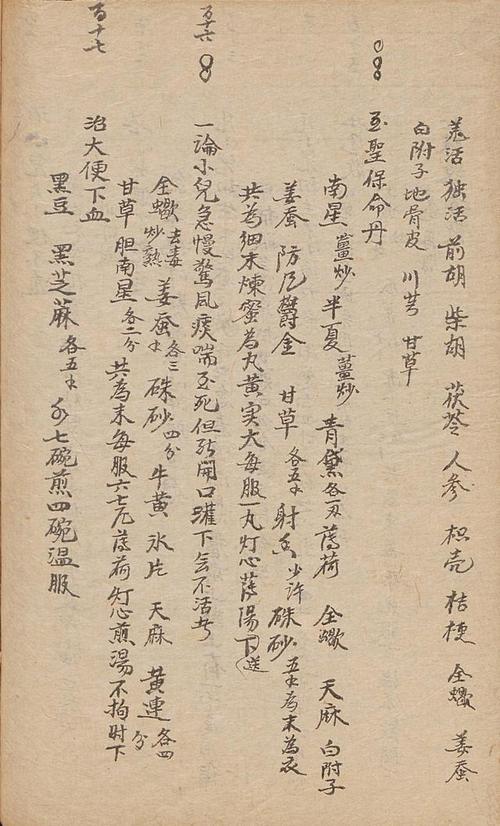 羗活 独活 前胡 柴胡 茯苓 人參 枳壳 桔梗 全蠍 姜蚕
白附子 地骨皮 川芎 甘草
8
至聖保命丹
南星薑炒 半夏薑炒 青黛各一刄 薄荷 全蠍 天麻 白附子
姜蚕 防风 欝金 甘草各五 射香少许 硃砂五 為末為衣
共為細末煉蜜為丸黄实大每服一丸灯心薄湯下送
百十六
8
一論小兒急慢驚風痰喘至死但能開口灌下無不活者
全蠍去毒炒熟 姜蚕各三 硃砂四分 牛黄 氷片 天麻 黄連各四分
甘草 胆南星各二分 共為末每服六七厘薄荷灯心煎湯不拘时下
百十七
治大便下血
黑豆 黑芝蔴各五 水七碗煎四碗温服